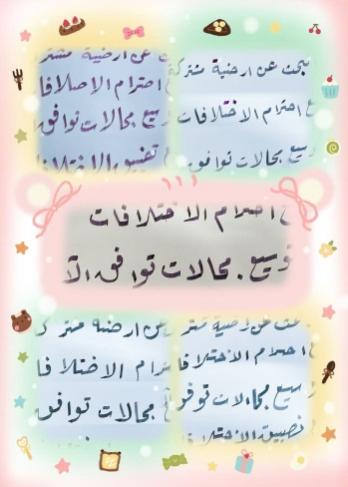 عن ارضية مشتر
احترام الاختلافا
سيع مجالات توافق
تضييق الاختلا
نبحث عن ارضية مشترك
احترام الاختلافات
سيع مجالات توافق
احترام الاختلافات
توسيع مجالات توافق الا
عن ارضية مشتر ك
ترام الاختلافا
مجالات توافق
بحث عن ارضية مشتر
احترام الاختلافا
سيع مجالات توفق
تضييق الاختلا